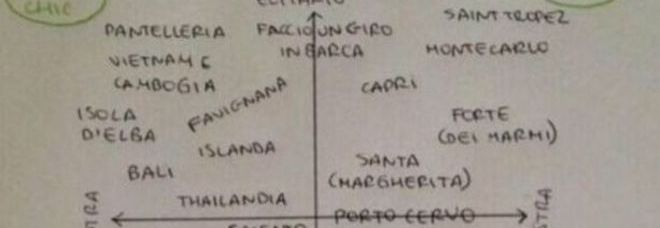 CHIC
PANTELLERIA
FACCIO UN GIRO
IN BARCA
SAINT TROPEZ
MONTECARLO
VIETNAM E
CAMBOGIA
CAPRI
FAVIGNANA
ISOLA
D'ELBA
FORTE
(DEI MARMI)
ISLANDA
SANTA
(MARGHERITA)
BALI
THAILANDIA
PORTO CERVO